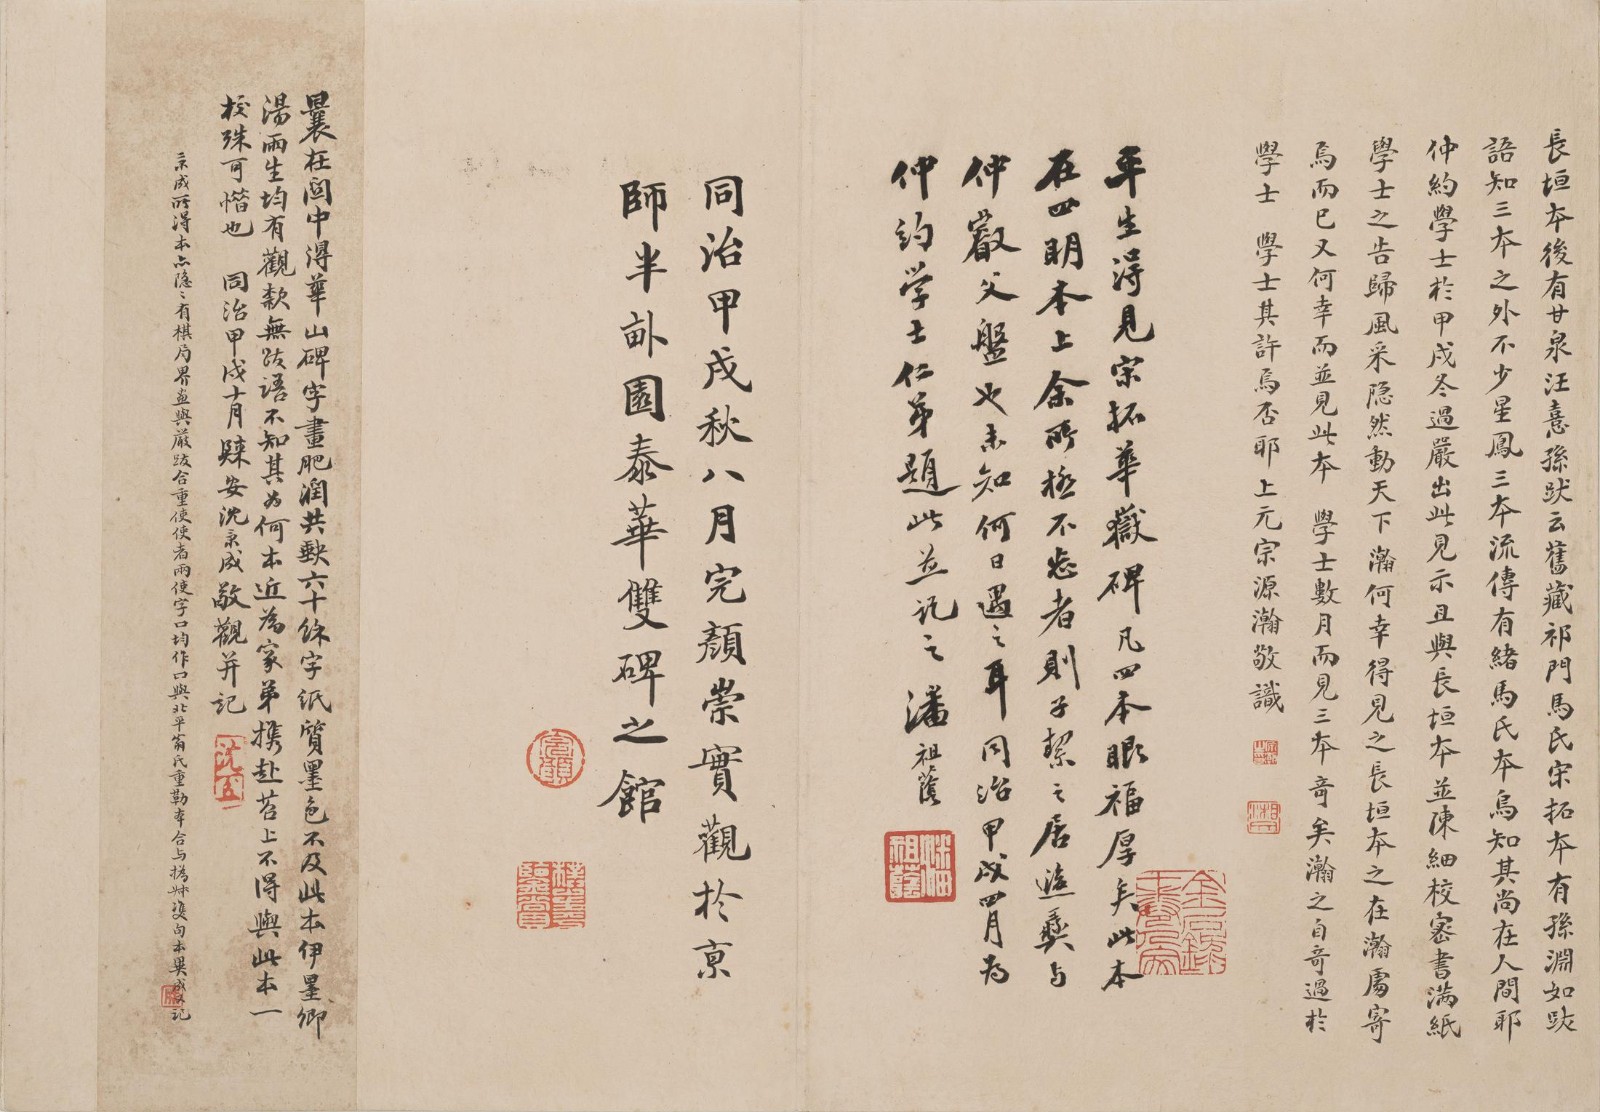 長垣本後有甘泉汪憙孫跋云舊藏祁門馬氏宋拓本有孫淵如跋
語知三本之外不少星鳳三本流傳有緒馬氏本烏知其尚在人間耶
仲約學士於甲戌冬過嚴出此見示且與長垣本並陳細校密書滿紙
學士之告歸風采隐然動天下瀚何幸得見之長垣本之在瀚處寄
焉而已又何幸而並見此本 學士數月而見三本奇矣瀚之自奇過於
學士 學士其許焉否耶上元宗源瀚敬識
平生得見宗拓華嶽碑凡四本眼福厚矣此本
在四明本上余所極不忘者則子絜之居延彝与
仲嚴父盤也未知何日遇之耳同治甲戌四月為
仲約学士仁弟題此並記之 潘祖蔭
潘祖蔭
同治甲戌秋八月完顏崇實觀於京
師半畝園泰華雙碑之館
完顏
曩在閩中得華山碑字畫肥潤共缺六十餘字紙質墨色不及此本伊墨卿
湯雨生均有觀款無跋語不知其為何本近為家弟携赴苕上不得與此本一
校殊可惜也 同治甲戌十月歸安沈秉成敬觀并記
秉成所得本亦隐隐有棋局界畫與嚴跋合重使使者兩使字口均作口與北平翁氏重勒本合与